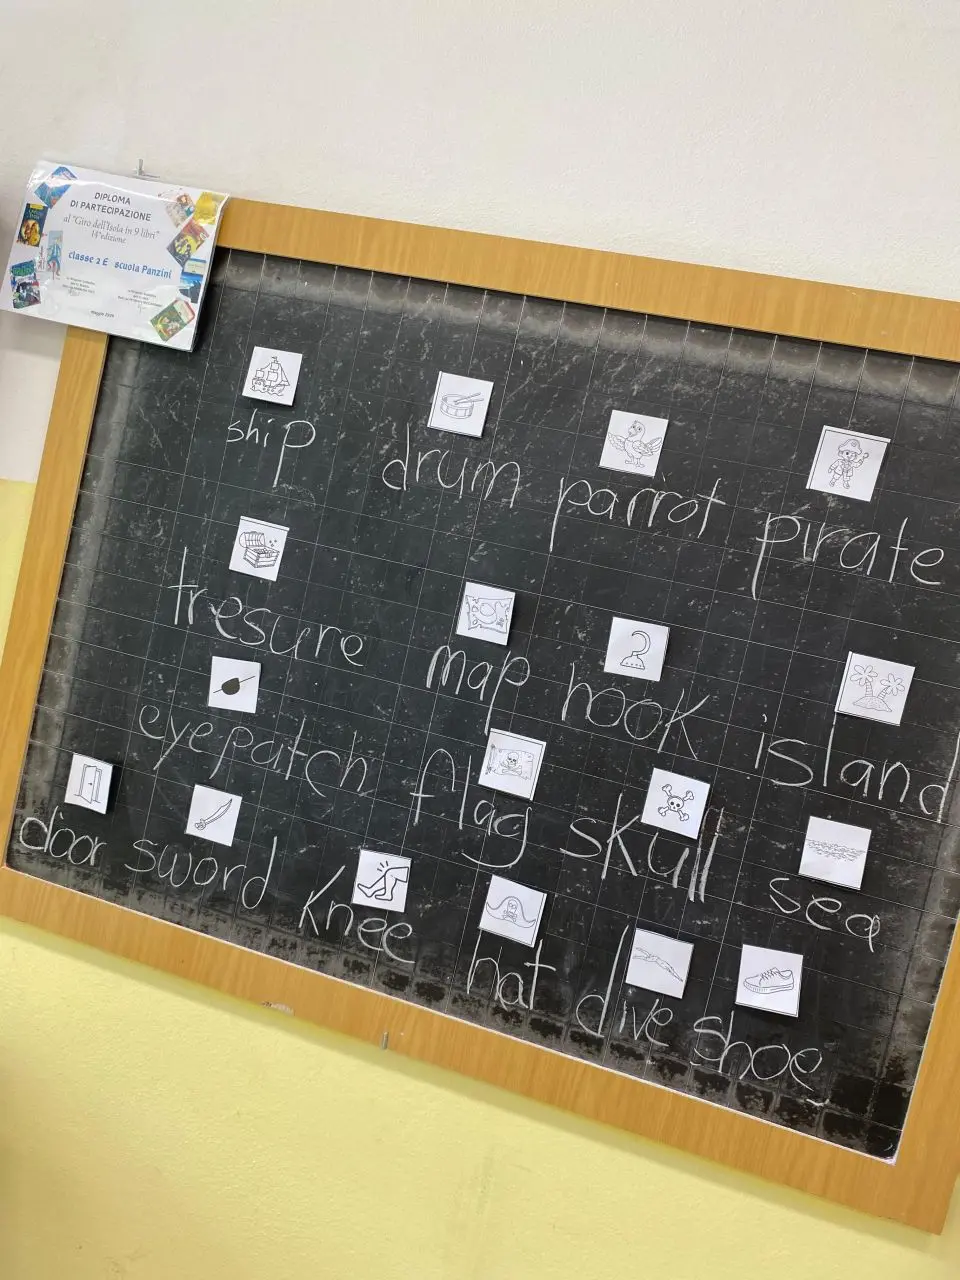 DIPLOMA
DI PARTECIPAZIONE
al "Giro dell'Isola in 9 libri"
14°edizione
classe 2 E scuola Panzini
ship drum parrot pirate
tresure map hook island
eyepatch flag skull sea
door sword knee hat dive shoe